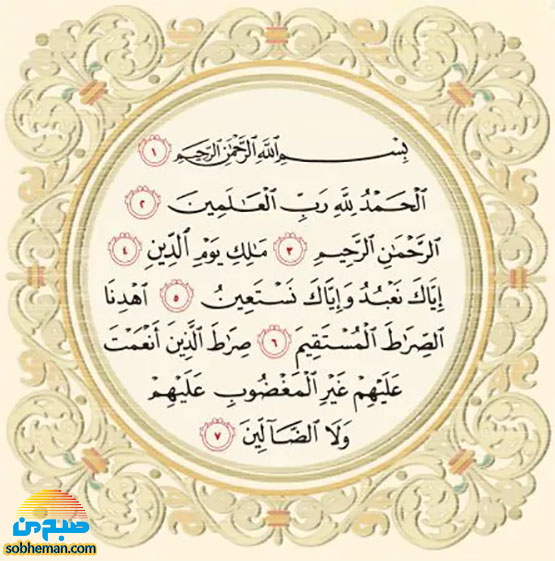 بِسْمِ ٱللَّهِ ٱلرَّحْمَٰنِ ٱلرَّحِيمِ ١
ٱلْحَمْدُ لِلَّهِ رَبِّ ٱلْعَٰلَمِينَ ٢
ٱلرَّحْمَٰنِ ٱلرَّحِيمِ ٣ مَٰلِكِ يَوْمِ ٱلدِّينِ ٤
إِيَّاكَ نَعْبُدُ وَإِيَّاكَ نَسْتَعِينُ ٥ ٱهْدِنَا
ٱلصِّرَٰطَ ٱلْمُسْتَقِيمَ ٦ صِرَٰطَ ٱلَّذِينَ أَنْعَمْتَ
عَلَيْهِمْ غَيْرِ ٱلْمَغْضُوبِ عَلَيْهِمْ
وَلَا ٱلضَّآلِّينَ ٧
صبح من
sobheman.com